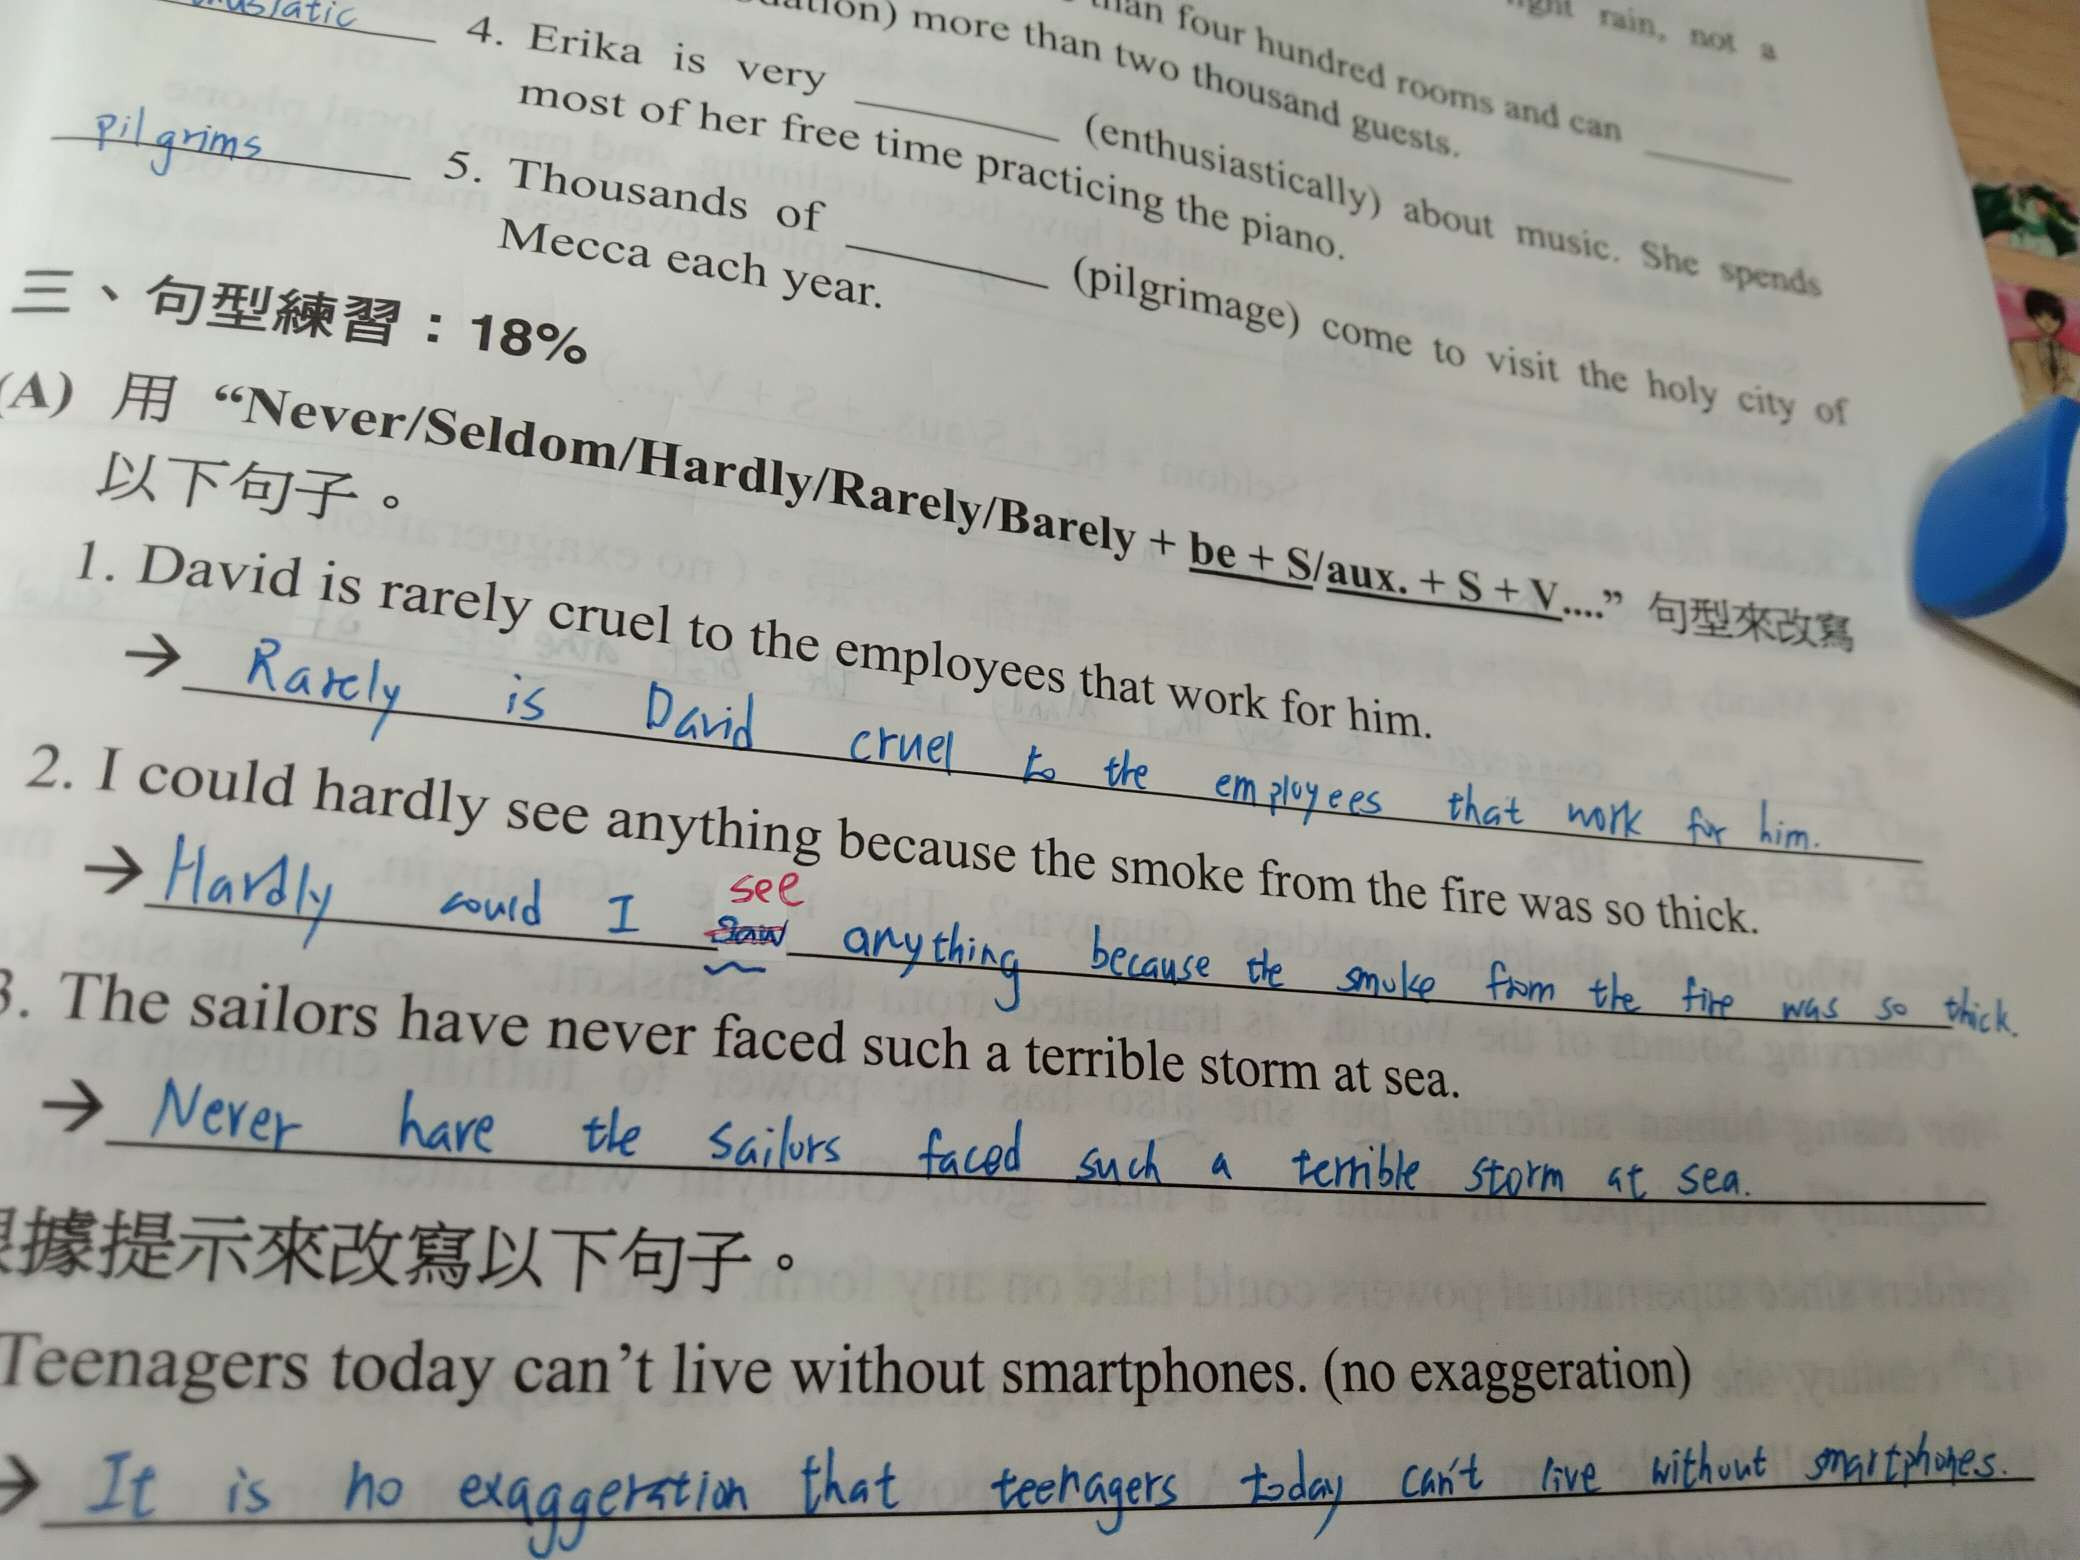 rain, not a
than four hundred rooms and can
more than two thousand guests.
4. Erika is very ______ (enthusiastically) about music. She spends
most of her free time practicing the piano.
pilgrims 5. Thousands of ______ (pilgrimage) come to visit the holy city of
Mecca each year.
三、句型練習：18%
(A) 用 “Never/Seldom/Hardly/Rarely/Barely + be + S/aux. + S + V....” 句型來改寫
以下句子。
1. David is rarely cruel to the employees that work for him.
→ Rarely is David cruel to the employees that work for him.
2. I could hardly see anything because the smoke from the fire was so thick.
see
→ Hardly could I saw anything because the smoke from the fire was so thick.
3. The sailors have never faced such a terrible storm at sea.
→ Never have the sailors faced such a terrible storm at sea.
據提示來改寫以下句子。
Teenagers today can’t live without smartphones. (no exaggeration)
→ It is no exaggeration that teenagers today can't live without smartphones.